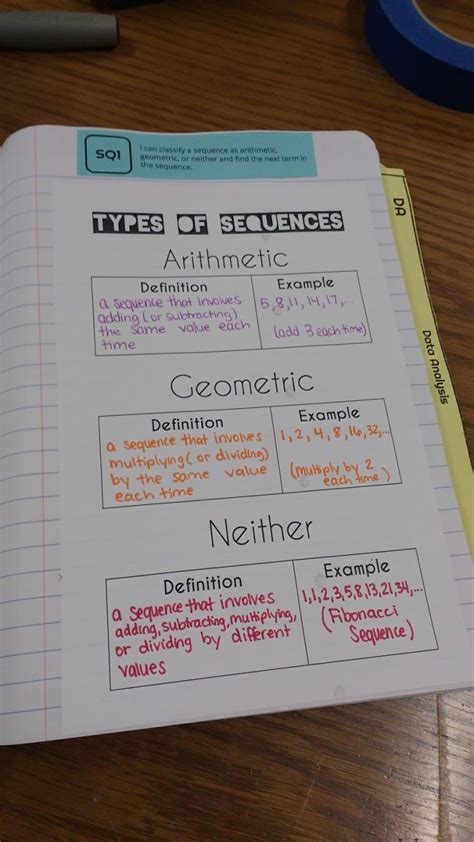 SQ1
I can classify a sequence as arithmetic,
geometric, or neither and find the next term in
the sequence.
TYPES OF SEQUENCES
Arithmetic
Definition
a sequence that involves
adding (or subtracting)
the same value each
time
Example
5,8,11,14,17,...
(add 3 each time)
Geometric
Definition
a sequence that involves
multiplying (or dividing)
by the same value
each time
Example
1,2,4,8,16,32,...
(multiply by 2
each time)
Neither
Definition
a sequence that involves
adding, subtracting, multiplying,
or dividing by different
values
Example
1,1,2,3,5,8,13,21,34,...
(Fibonacci
Sequence)
DA
Data Analysis